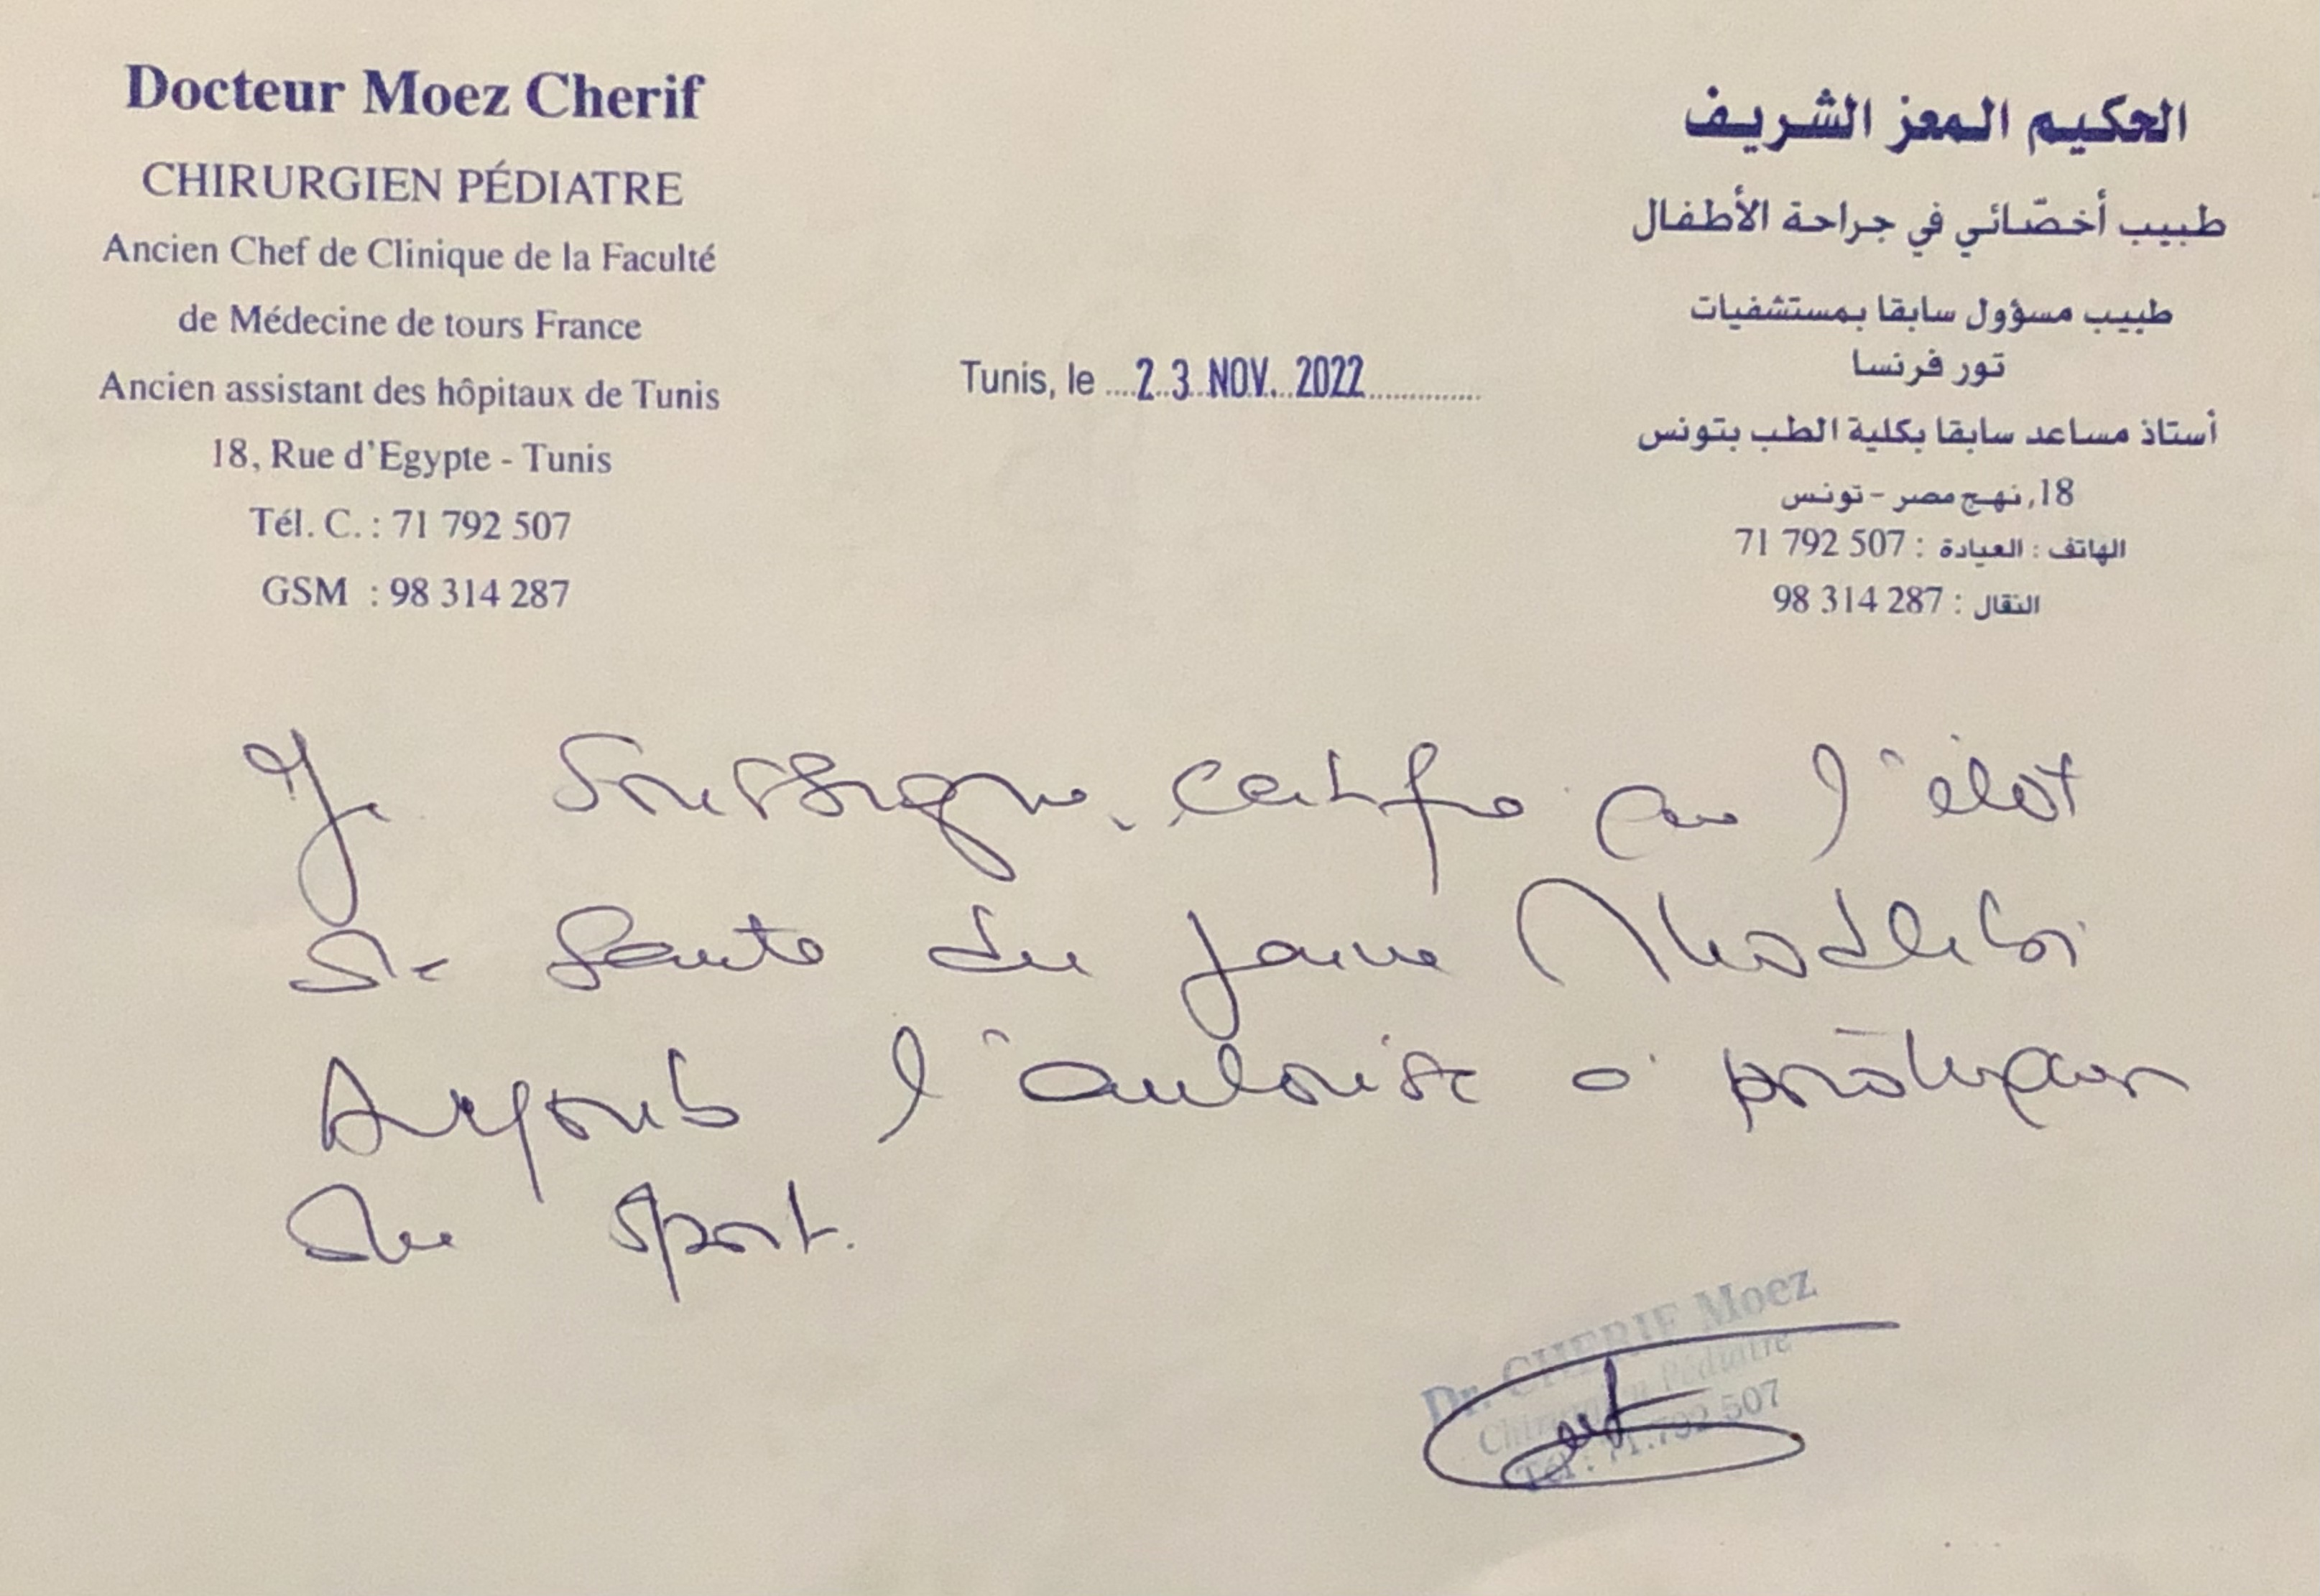 Docteur Moez Cherif
CHIRURGIEN PÉDIATRE
Ancien Chef de Clinique de la Faculté
de Médecine de tours France
Ancien assistant des hôpitaux de Tunis
18, Rue d'Egypte - Tunis
Tél. C. : 71 792 507
GSM : 98 314 287
الحكيم المعز الشريف
طبيب أخصّائي في جراحة الأطفال
طبيب مسؤول سابقا بمستشفيات
تور فرنسا
أستاذ مساعد سابقا بكلية الطب بتونس
18, نهج مصر - تونس
الهاتف : العيادة : 71 792 507
النقال : 98 314 287
Tunis, le 23 NOV. 2022
Je soussigné, certifie que l'état
de santé du jeune
Ayoub l'autorise à pratiquer
du sport.
Dr. CHERIF Moez
Chirurgien Pédiatre
Tél : 71.792 507